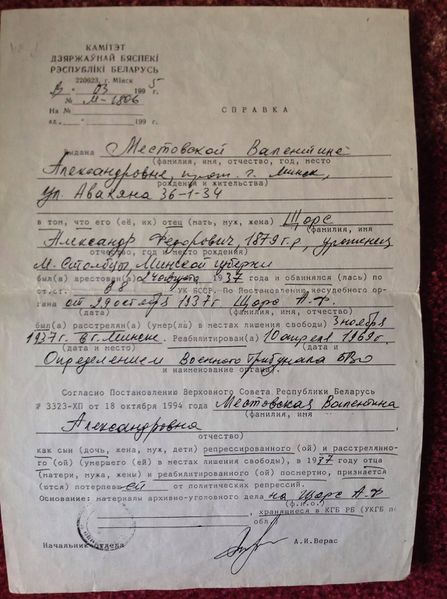 КАМІТЭТ
ДЗЯРЖАЎНАЙ БЯСПЕКІ
РЭСПУБЛІКІ БЕЛАРУСЬ
220623, г. Мінск
03 1995г.
№ М-1806
На №
ад „ “ 199 г.
СПРАВКА
выдана Местовской Валентине
(фамилия, имя, отчество, год, место
Александровне, прож. г. Минск,
рождения и жительства)
ул. Авакяна 36-1-34
в том, что его (её, их) отец (мать, муж, жена) Щорс
(фамилия, имя
Александр Федорович, 1879 г.р., уроженец
отчество, год и место рождения)
м. Столбцы, Минской губерни
был(а) арестован(а) 24 августа 1937 г. и обвинялся (лась) по
ст.ст. УК БССР. По Постановлению несудебного ор-
гана от 29 октября 1937г Щорс А.Ф.
(дата) (фамилия, имя, отчество)
был(а) расстрелян(а) (умер(ла) в местах лишения свободы) 3 ноября
1937г. в г. Минске. Реабилитирован(а) 10 апреля 1969г.
(дата и место) (дата и
Определением Военного Трибунала БВО
и наименование органа)
Согласно Постановлению Верховного Совета Республики Беларусь
№ 3323-ХП от 18 октября 1994 года Местовская Валентина
(фамилия, имя,
Александровна
отчество)
как сын (дочь, жена, муж, дети) репрессированного (ой) и расстрелянно-
го (ой) (умершего (ей) в местах лишения свободы), в 1937 году отца
(матери, мужа, жены) и реабилитированного (ой) посмертно, признается
(ются) потерпевшей от политических репрессий.
Основание: материалы архивно-уголовного дела на Щорс А.Ф
(ф.и.о.)
хранящиеся в КГБ РБ (УКГБ п
обл.)
Начальник отдела А.И.Верас